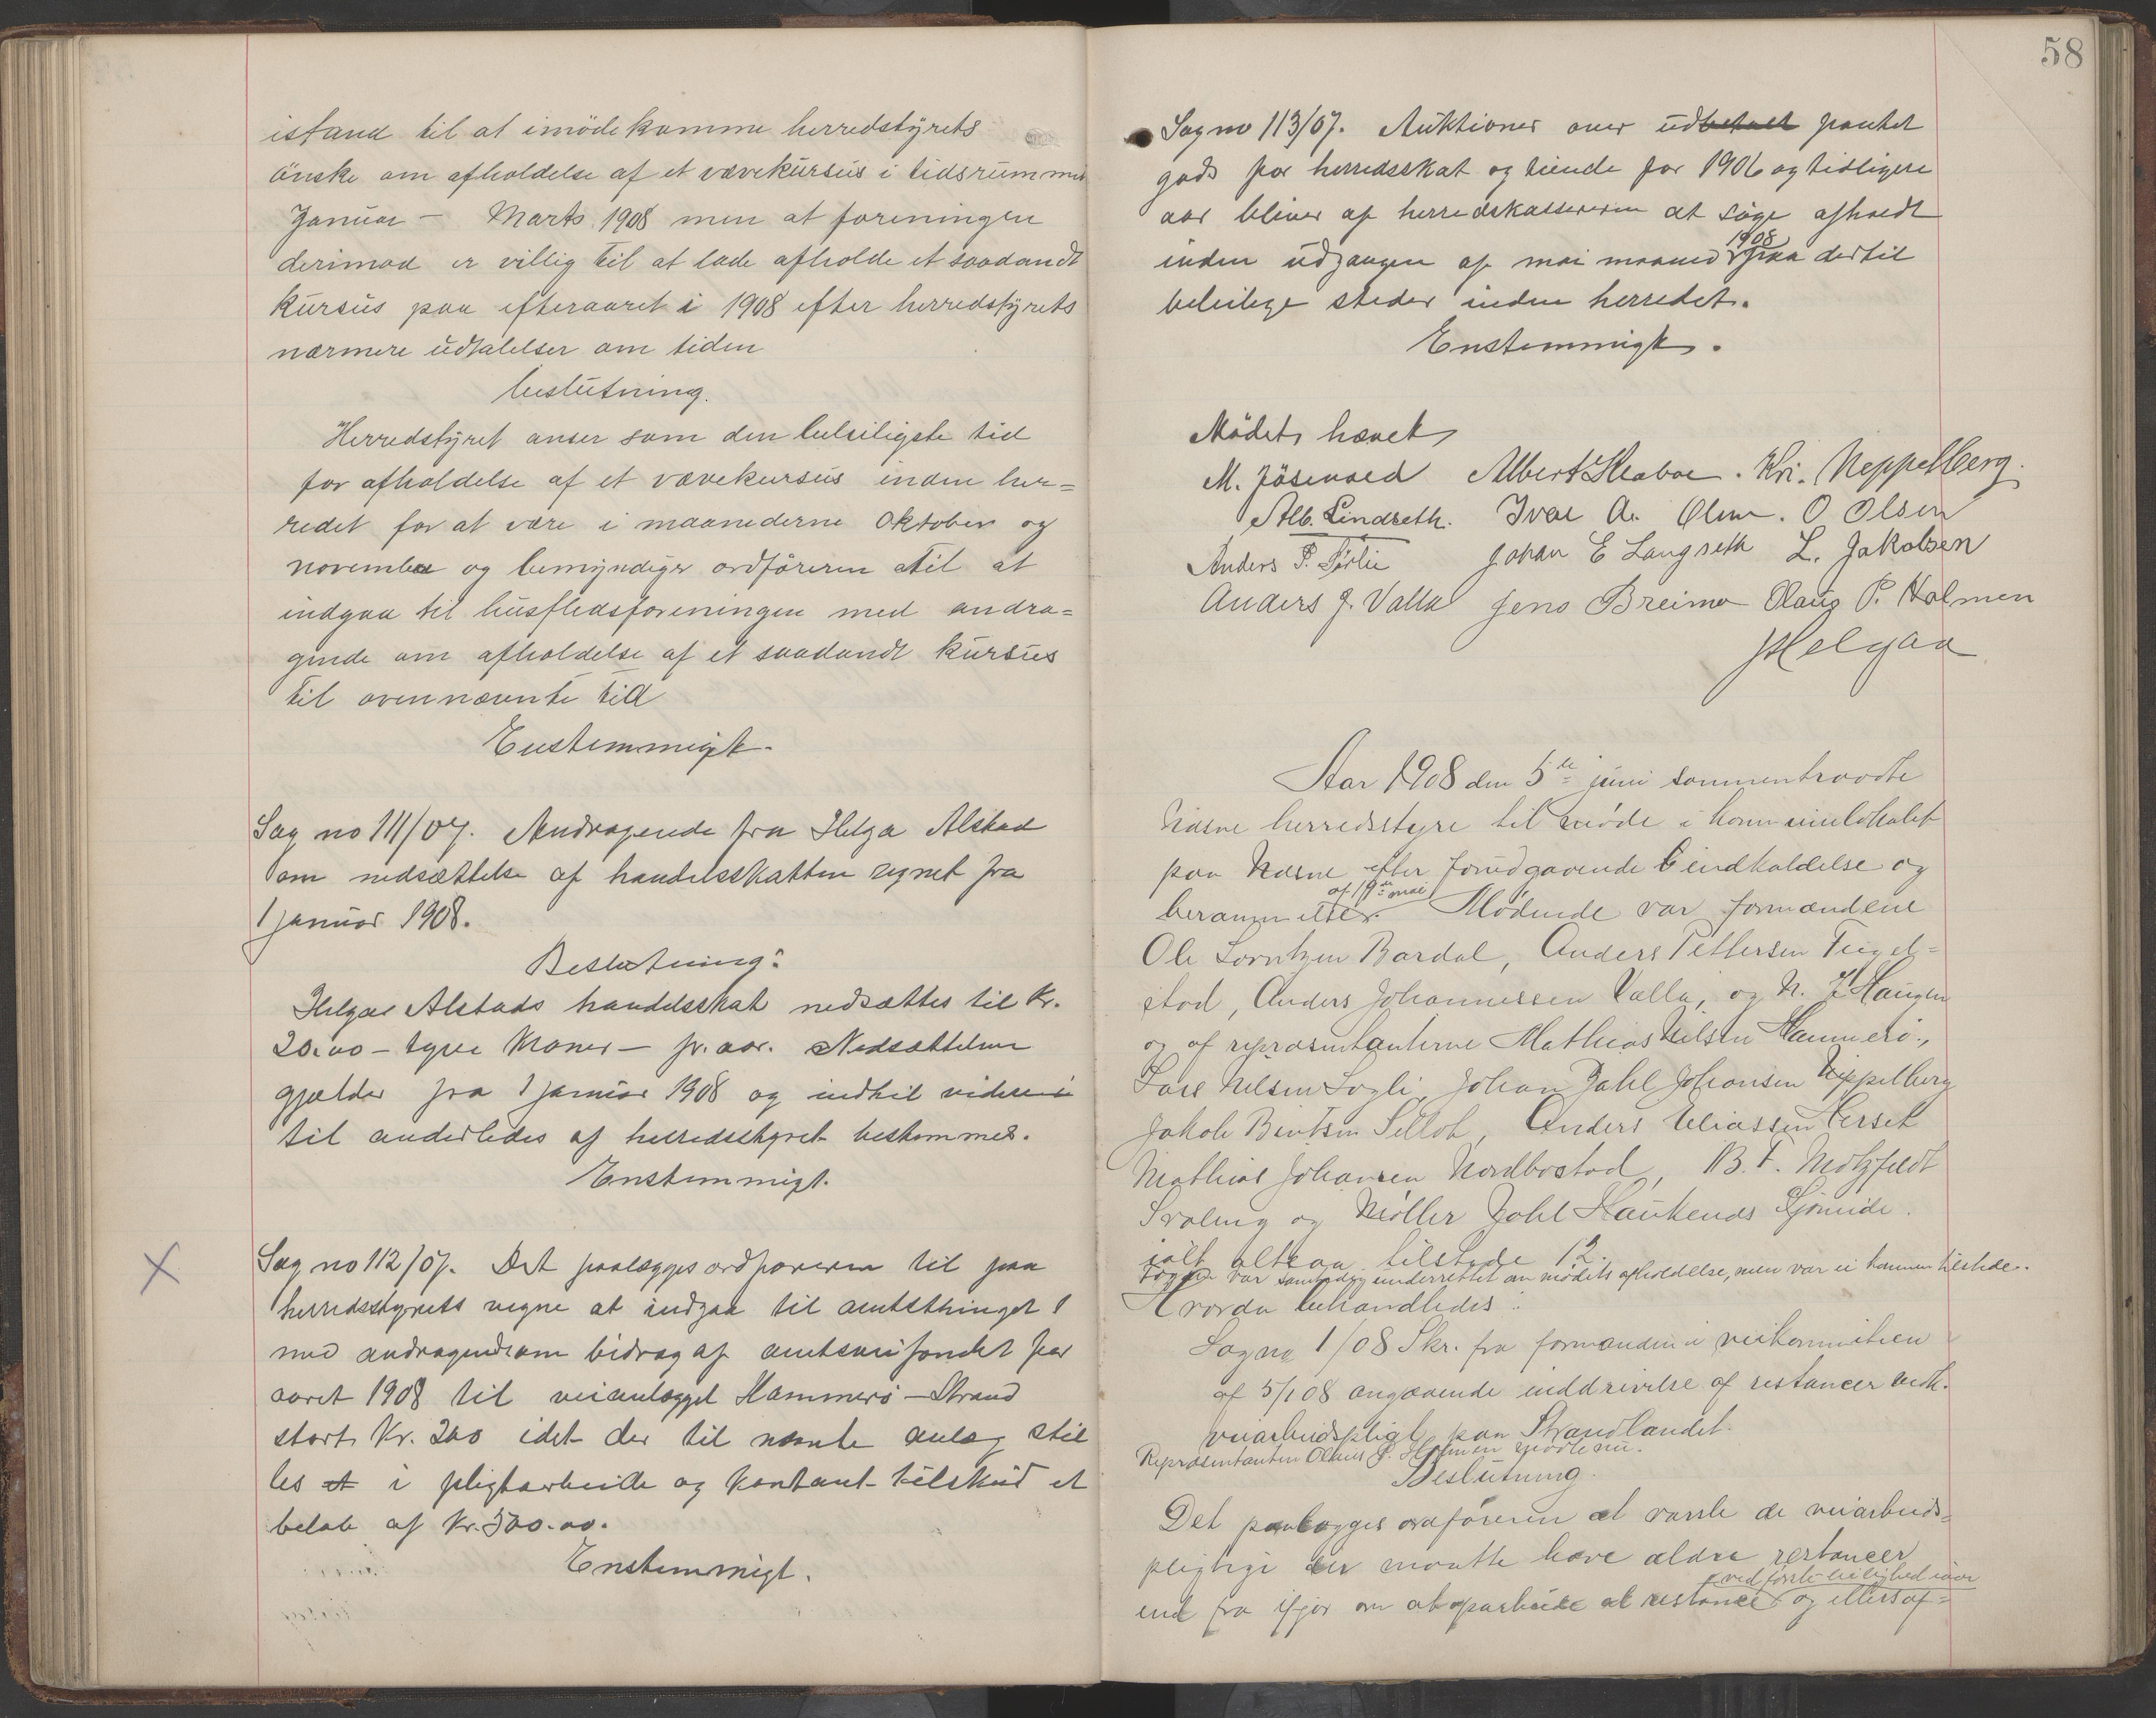 istand til at imödekomme herredstyrets
önske om afholdelse af et vævekursus i tidsrummet
Januar – Marts 1908 men at foreningen
derimod er villig til at lade afholde et saadandt
kursus paa efteraaret i 1908 efter herredstyrets
nærmere udtalelser om tiden
beslutning.
Herredstyret anser som den beleiligste tid
for afholdelse af et vævekursus inden her=
redet for at være i maanederne Oktober og
november og bemyndiger ordföreren til at
indgaa til husflidsforeningen med andra=
gende om afholdelse af et saadandt kursus
til ovennævnte tid
Enstemmigt.
Sag no 111/07. Andragende fra Helga Alstad
om nedsættelse af handelsskatten regnet fra
1 januar 1908.
Beslutning:
Helga Alstads handelsskat nedsættes til Kr.
20.00 – tyve Kroner – pr. aar. Nedsættelsen
gjælder fra 1 januar 1908 og indtil videre
til anderledes af herredstyret bestemmes.
Enstemmigt.
Sag no 112/07. Det paalægges ordföreren til paa
herredsstyrets vegne at indgaa til amtsthinget
med andragende om bidrag af amtsveifondet for
aaret 1908 til veianlægget Hammerö – Strand
stort Kr. 200 idet der til nævnte anlæg stil
les et i pligtarbeide og kontant tilskud et
beløb af Kr. 500.00.
Enstemmigt.
58
Sag no 113/07. Auktioner over udbetalt pantet
gods for herredsskat og tiende for 1906 og tidligere
aar bliver af herredskassereren at søge afholdt
1908
inden udgangen af mai maaned paa dertil
beleilige steder inden herredet.
Enstemmigt.
Mödet hævet
M. Jösenved Albert Kleboe. Kri. Neppelberg.
Alb. Lindseth. Ivar A. Olsen. O Olsen
Anders P. Sörlie Johan E Langseth L. Jakobsen
Anders J. Valla Jens Breimo Olaus P. Holmen
JHelgaa
Aar 1908 den 5te juni sammentraadte
Næsne herredsstyre til møde i kommunelokalet
paa Næsne efter forudgaaende indkaldelse og
af 19de mai
berammelse. Mødende var formændene
Ole Lorntzen Bardal, Anders Pettersen Teigel=
stad, Anders Johannessen Valla, og N. Z Haugen
og af repræsentanterne Mathias Nilsen Hammerö,
Lars Nilsen Sogli, Johan Dahl Johansen Neppelberg
Jakob Bentsen Sellot, Anders Eliassen Herset
Mathias Johansen Nordbostad, B. F. Motzfeldt
Svaleng og Møller Dahl Haukenæs Skjömide.
ialt altsaa tilstede 12.
var underrettet om mödets afholdelse, men var ei kommen tilstede.
Hvorda behandledes:
Sag no 1/08 Skr. fra formanden i veikommiteen
af 5/1 08 angaaende inddrivelse af restancer vedk.
veiarbeidspligt paa Strandlandet.
Repræsentanten Olaus P. Holmen mödte nu.
Beslutning.
Det paalægges ordføreren at varsle de veiarbeids=
pligtige der maatte have ældre restancer
ved første leilighed iaar
end fra ifjor om at oparbeide al restance og ellers af=